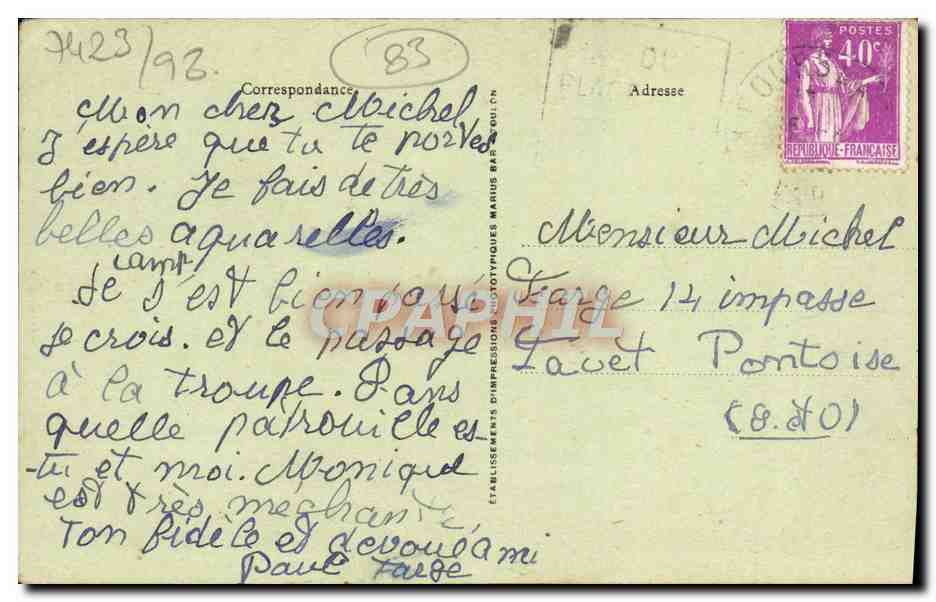 7423/93.
83
Correspondance
Adresse
POSTES
40c
REPUBLIQUE-FRANÇAISE
Mon cher Michel
J'espère que tu te portes
bien. Je fais de très
belles aquarelles.
camp
Le s'est bien passé
je crois. et le passage
à la troupe. Dans
quelle patrouille es-
-tu et moi. Monique
est très méchante,
Ton fidèle et dévoué ami
Paul Farge
ÉTABLISSEMENTS D'IMPRESSIONS PHOTOTYPIQUES MARIUS BAR TOULON
Monsieur Michel
Farge 14 impasse
Tavet Pontoise
(S. et O)
CPAPHIL